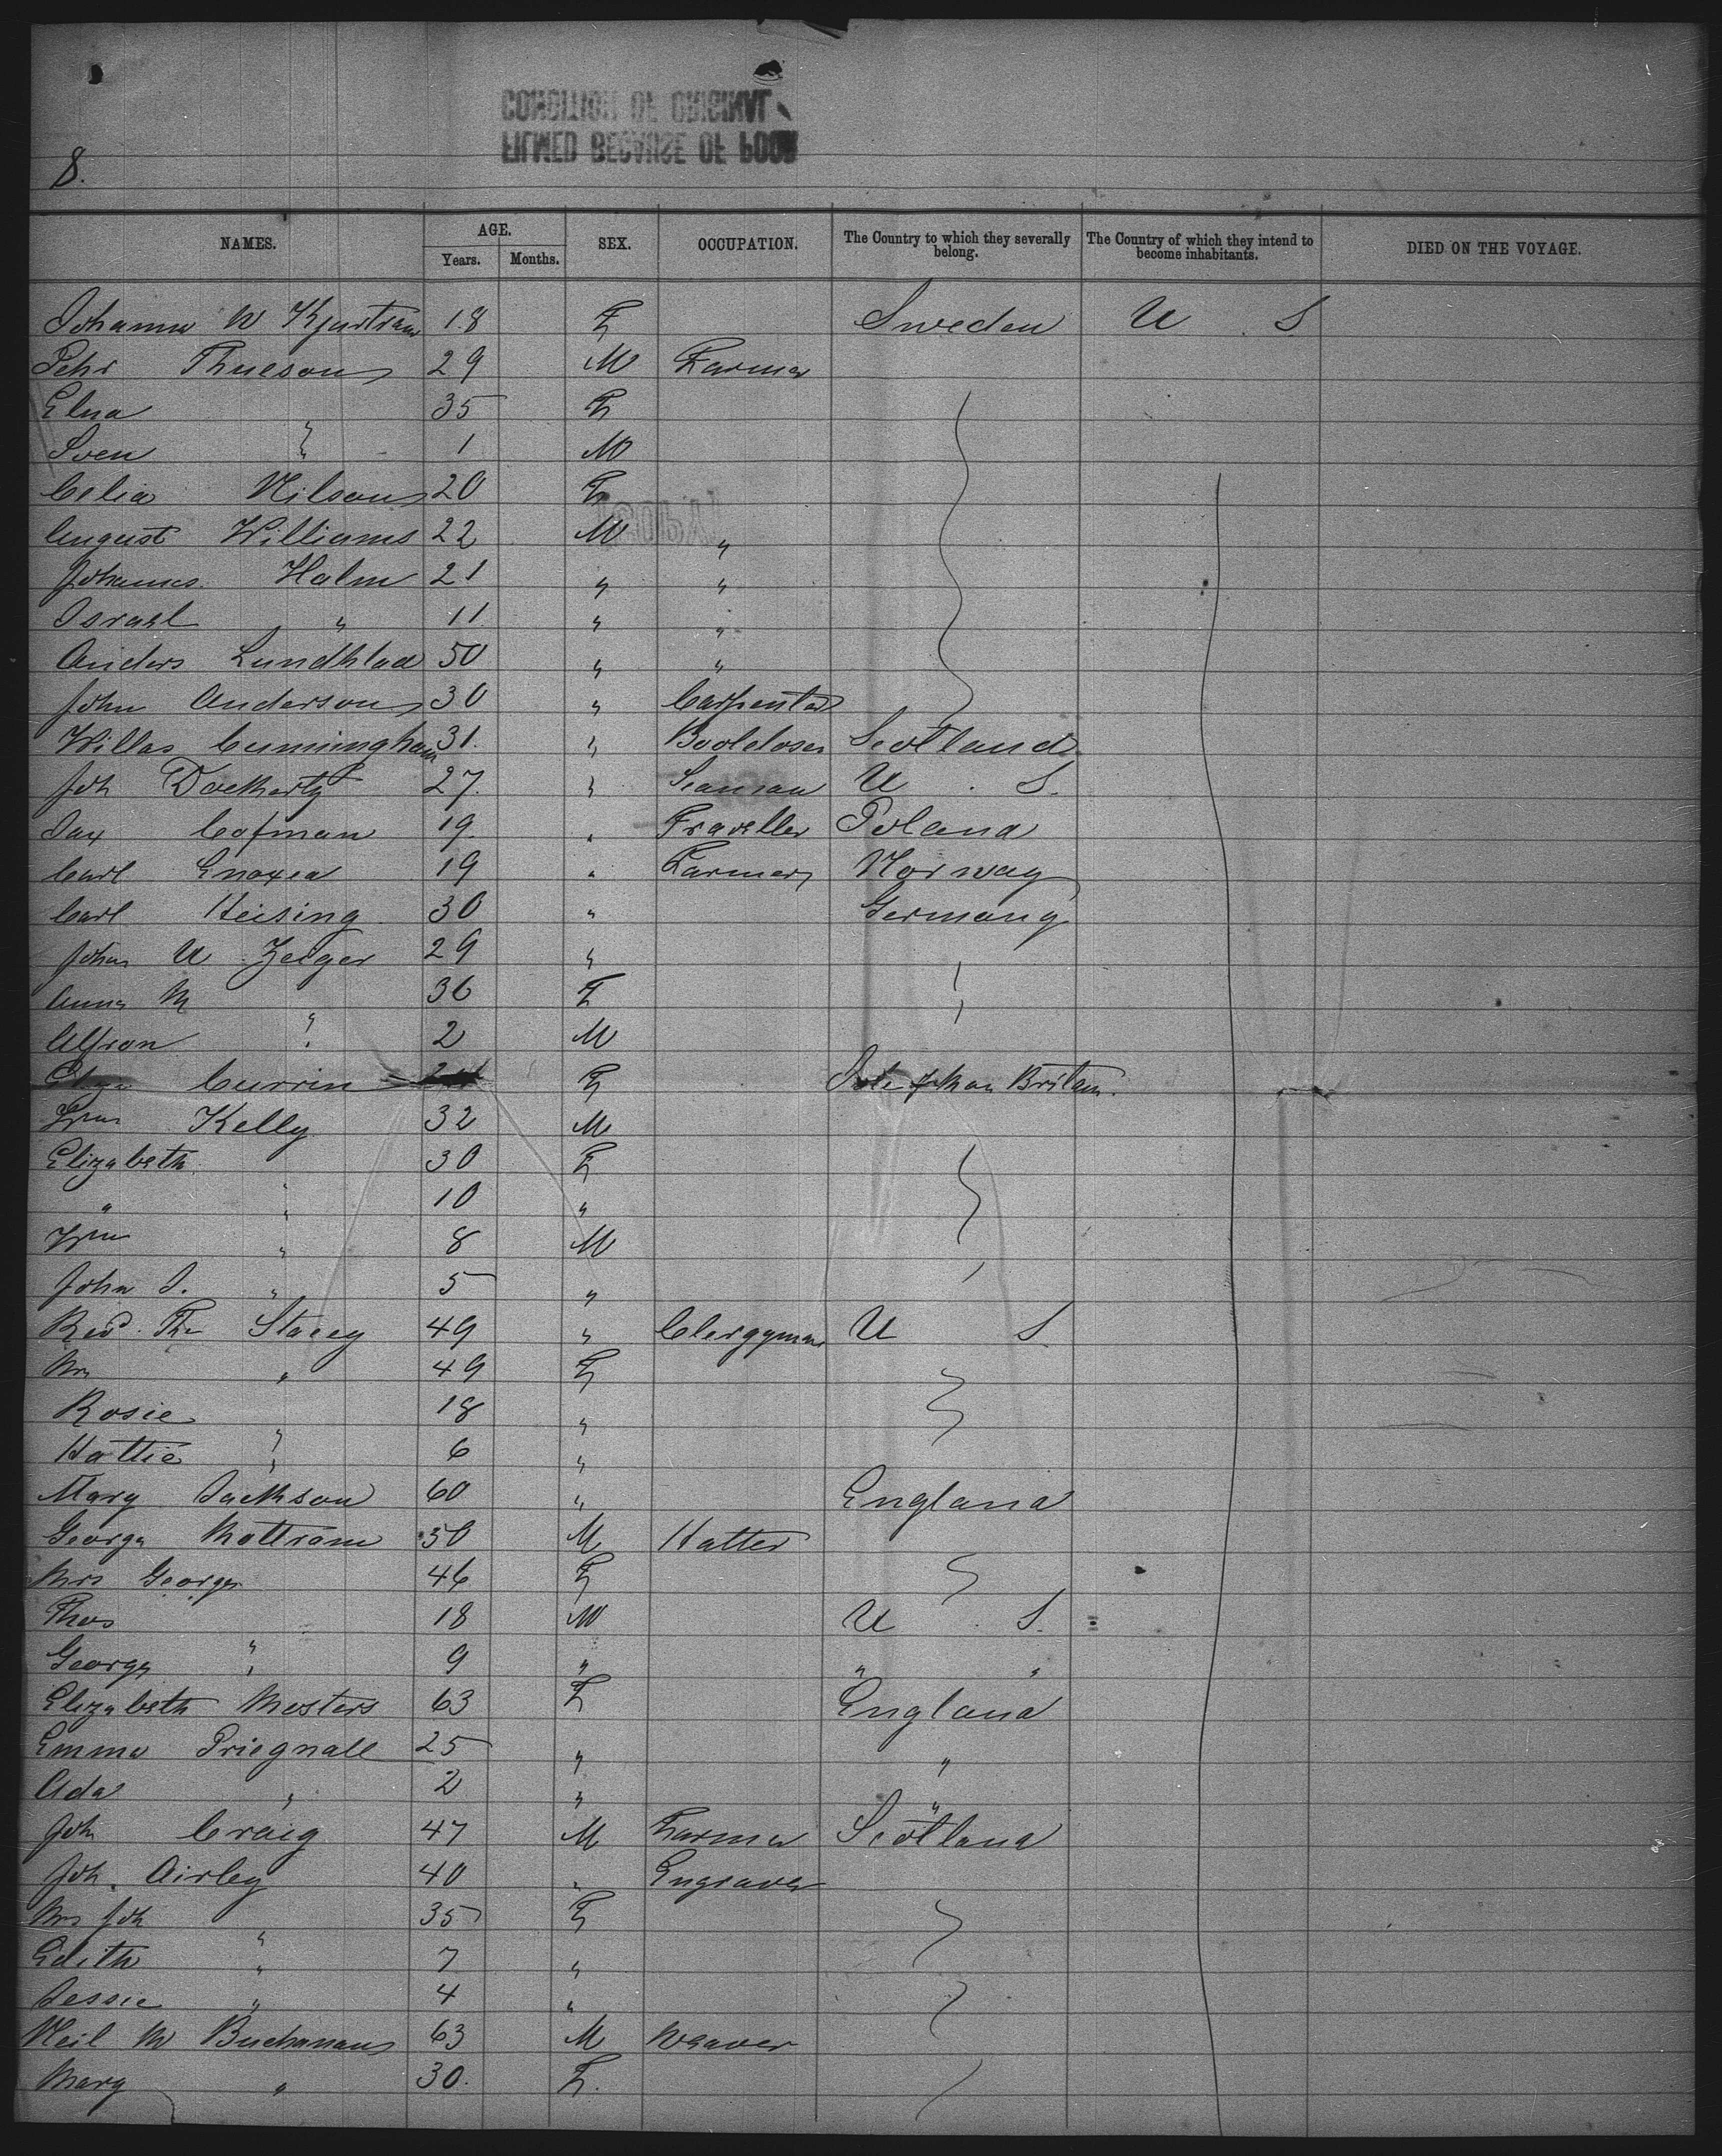 8.
NAMES. AGE. SEX. OCCUPATION. The Country to which they severally belong. The Country of which they intend to become inhabitants. DIED ON THE VOYAGE.
Years. Months.
Johanna W 18 F Sweden U . S
Pehr Thueson 29 M Farmer
Elna 35 F
Sven " 1 M
Celia Nilson 20 F
August Williams 22 M "
Johannes Holm 21 " "
Israel " 11 " "
Anders Lundblad 50 " "
John Anderson 30 " Carpenter
Cunningham 31. " Scotland
Joh Docherty 27. " Seaman U . S.
Cofman 19. " Traveller Poland
Carl 19 " Farmer Norway
Carl Heising 30 " Germany
Johan U Zeiger 29 "
Anna M 36 F
" 2 M
Currin F Isle of Man Britain.
Wm Kelly 32 M
Elizabeth 30 F
" " 10 "
Wm " 8 M
John J. " 5 "
Revd. Stacey 49 " Clergyman U S
Mrs " 49 F
Rosie 18 "
Hattie " 6 "
Mary Jackson 60 " England
George Mottram 50 M Hatter
Mrs George 46 F
Thos 18 M U . S.
George " 9 " " "
Elizabeth Mosters 63 F England
Emma Priegnall 25 " "
Ada " 2 " "
Joh Craig 47 M Farmer Scotland
Joh. Airley 40 " Engraver
Mrs Joh 35 F
Edith " 7 "
Jessie " 4 "
Neil M Buchanan 63 M Weaver
Mary " 30. F.